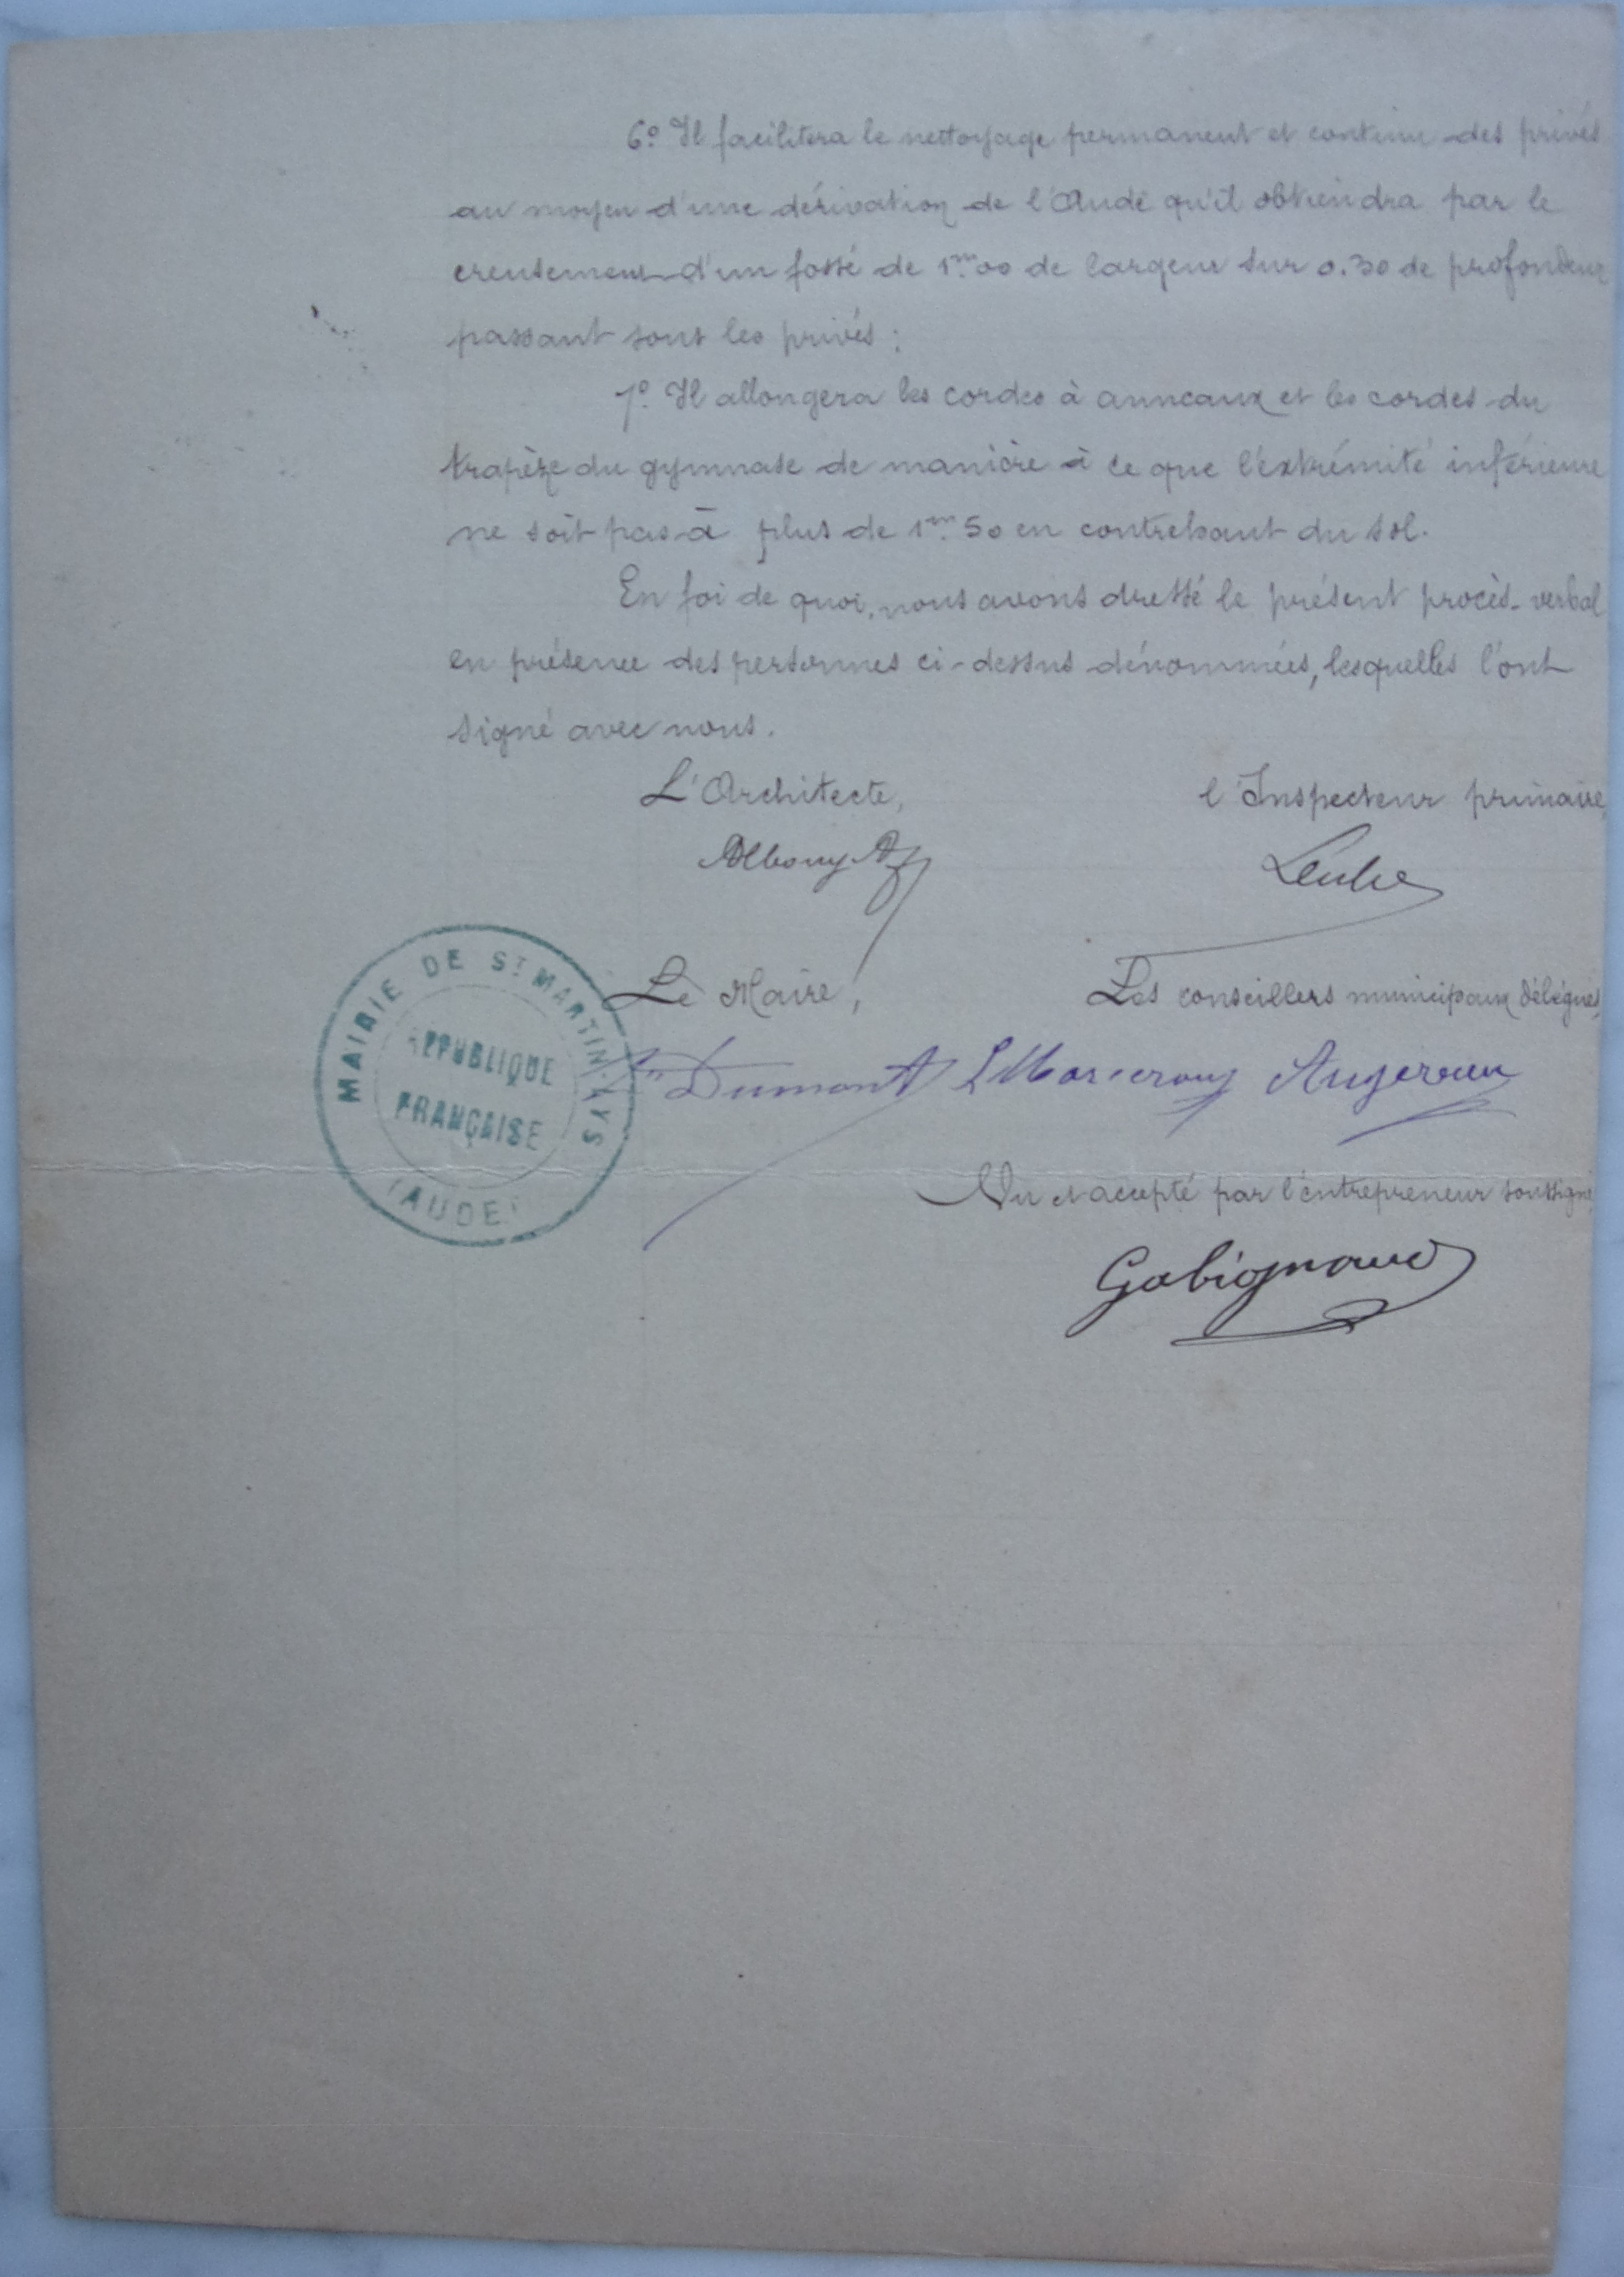 6.° Il facilitera le nettoyage permanent et continu des privés
au moyen d'une dérivation de l'Aude qu'il obtiendra par le
creusement d'un fossé de 1.m00 de largeur sur 0.30 de profondeur
passant sous les privés ;
7.° Il allongera les cordes à anneaux et les cordes du
trapèze du gymnase de manière à ce que l'extrémité inférieure
ne soit pas à plus de 1.m50 en contrehaut du sol.
En foi de quoi, nous avons dressé le présent procès-verbal
en présence des personnes ci-dessus dénommées, lesquelles l'ont
signé avec nous.
L'Architecte,
l'Inspecteur primaire,
Albouy
Le Maire,
Les conseillers municipaux délégués,
MAIRIE DE ST MARTIN-LYS
REPUBLIQUE
FRANÇAISE
(AUDE)
Dumont
Vu et accepté par l'entrepreneur soussigné,
Gabignaud